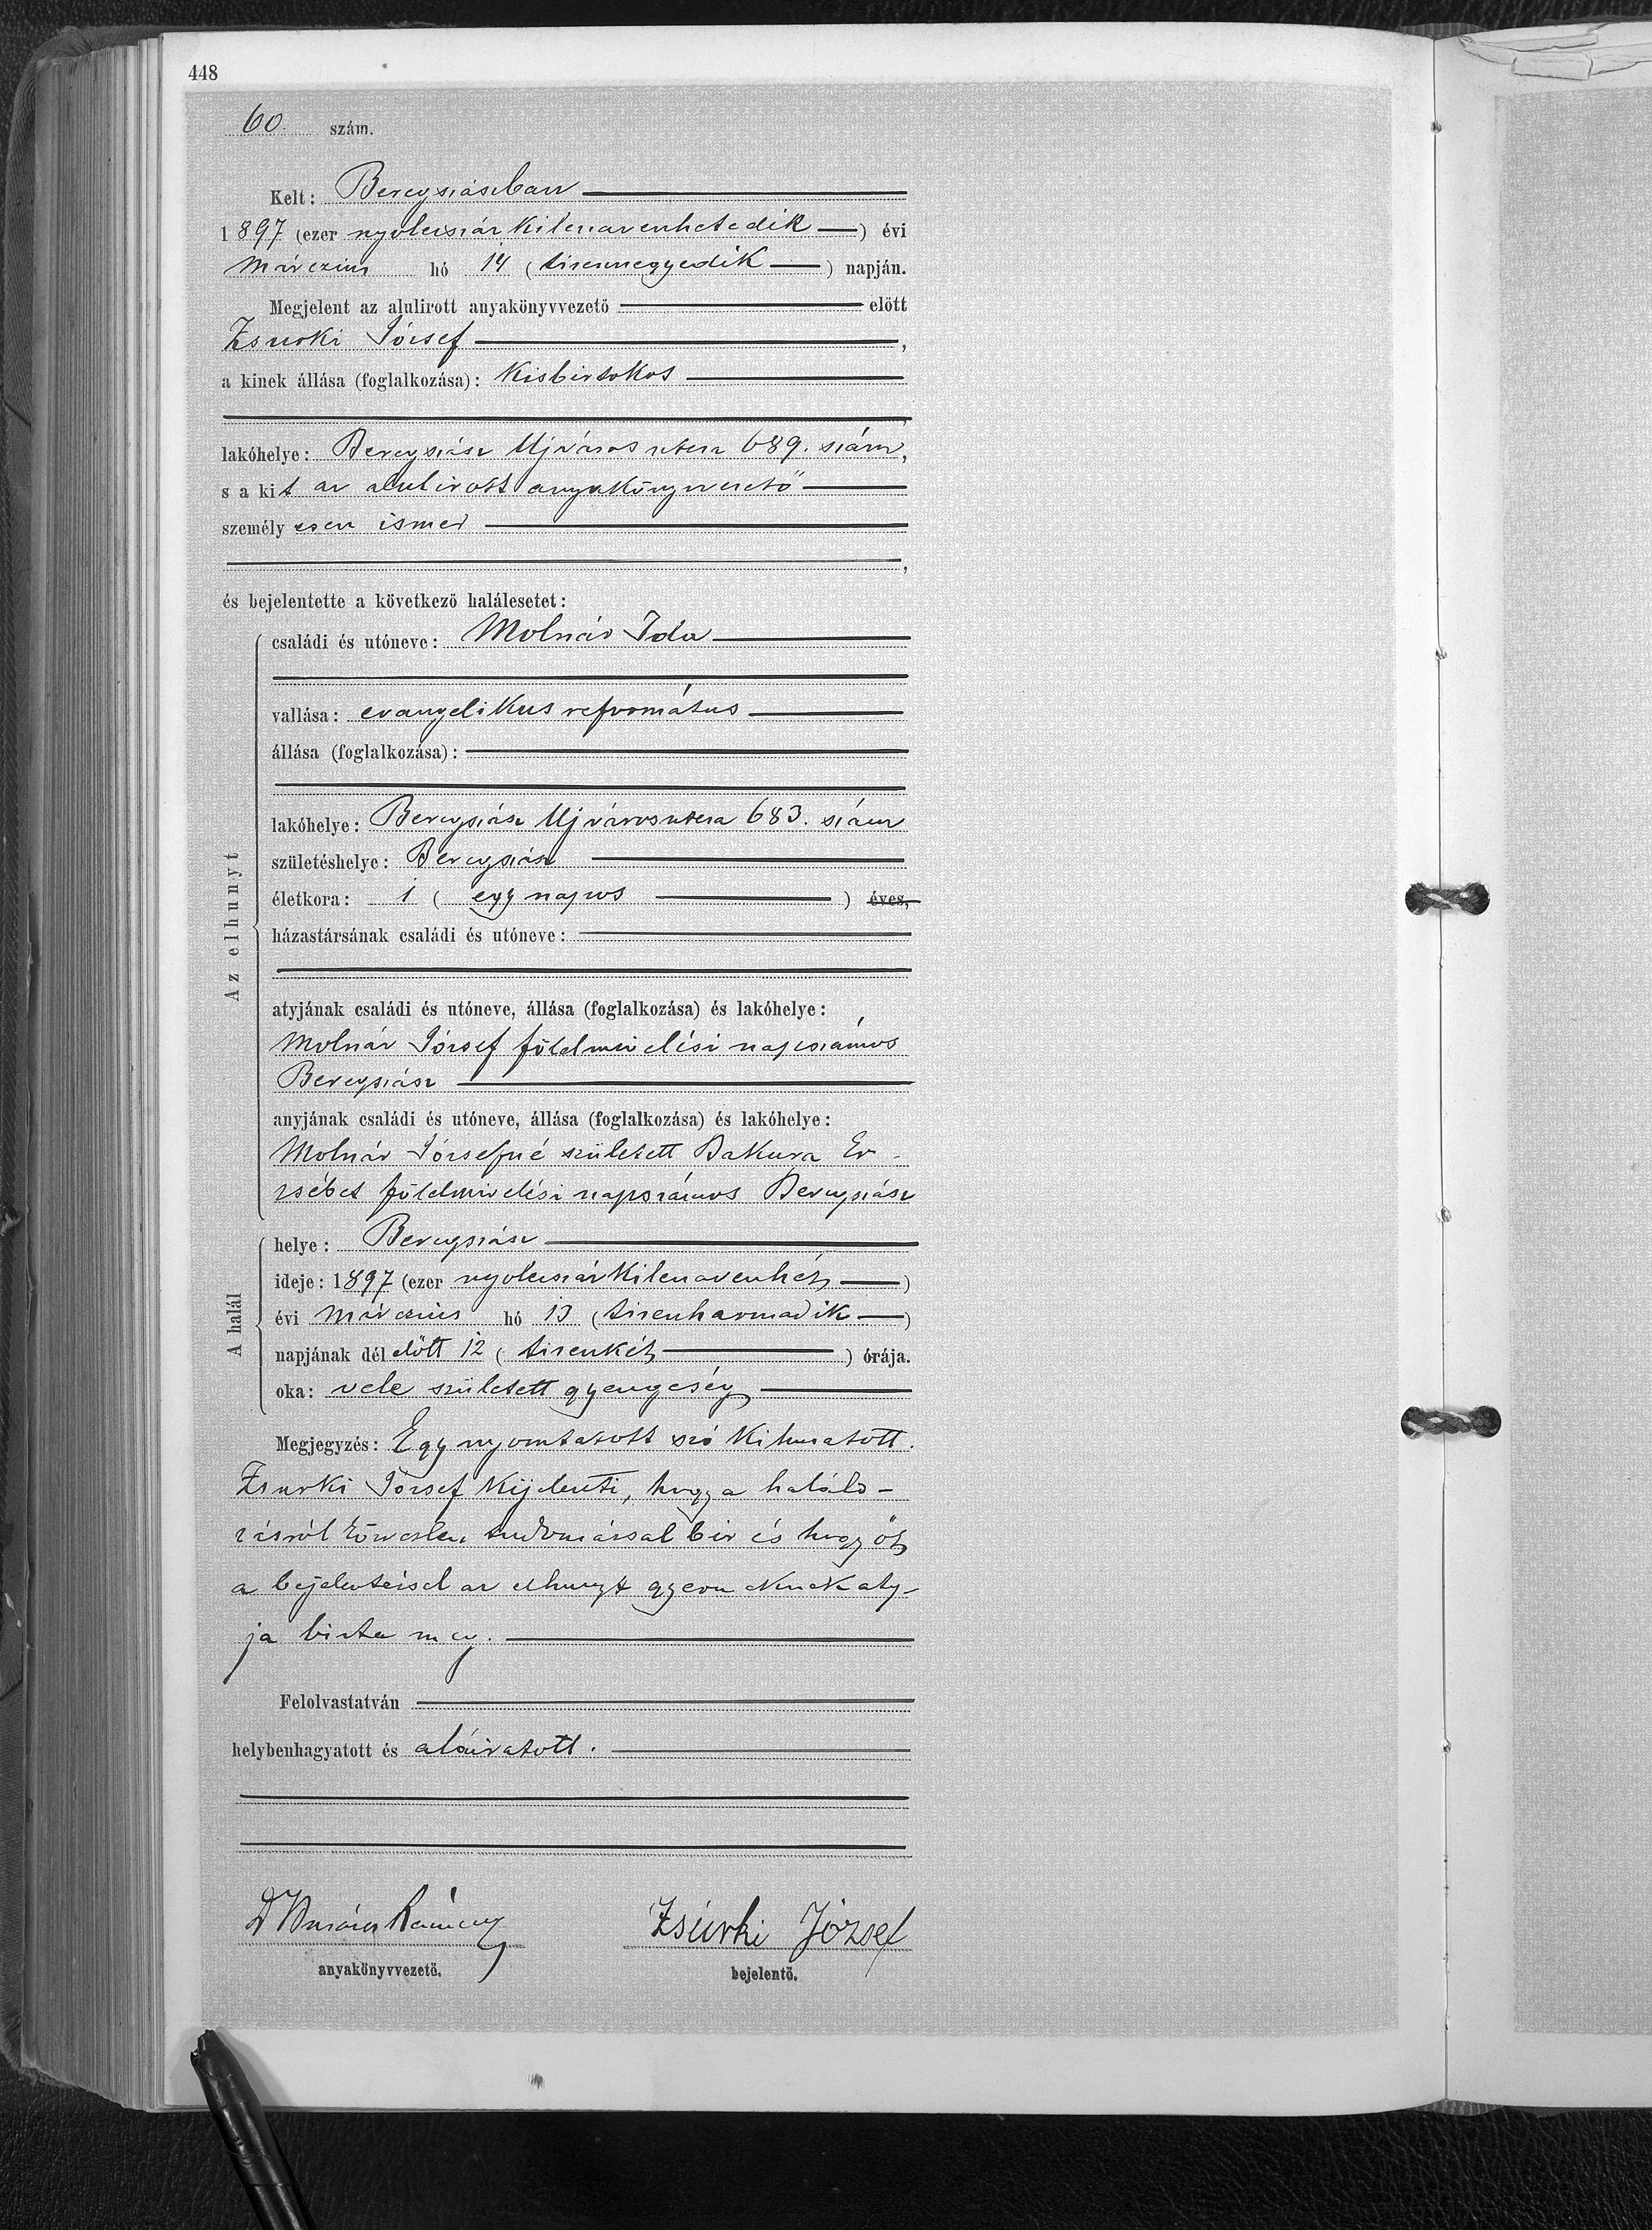 448
60. szám.
Kelt: Beregszászban
1897 (ezer nyolczszáz kilenczvenhetedik) évi
márczius hó 14 (tizennegyedik) napján.
Megjelent az alulirott anyakönyvvezető előtt
Zsurki József,
a kinek állása (foglalkozása): kisbirtokos
lakóhelye: Beregszász Ujváros utcza 689. szám,
s a kit az alulirott anyakönyvvezető
személyesen ismer
,
és bejelentette a következő halálesetet:
Az elhunyt
családi és utóneve: Molnár Ida
vallása: evangelikus református
állása (foglalkozása):
lakóhelye: Beregszász Ujváros utcza 683. szám
születéshelye: Beregszász
életkora: 1 (egy napos) éves,
házastársának családi és utóneve:
atyjának családi és utóneve, állása (foglalkozása) és lakóhelye:
Molnár József földmivelési napszámos
Beregszász
anyjának családi és utóneve, állása (foglalkozása) és lakóhelye:
Molnár Józsefné született Bakura Er-
zsébet földmivelési napszámos Beregszász
A halál
helye: Beregszász
ideje: 1897 (ezer nyolczszáz kilenczvenhét)
évi márczius hó 13 (tizenharmadik)
napjának dél előtt 12 (tizenkét) órája.
oka: vele született gyengeség
Megjegyzés: Egy nyomtatott szó kihuzatott.
Zsurki József kijelenti, hogy a halálo-
zásról közvetlen tudomással bir és hogy őt
a bejelentéssel az elhunyt gyermeknek aty-
ja bizta meg.
Felolvastatván
helybenhagyatott és aláiratott.
Zsúrki József
anyakönyvvezető.
bejelentő.